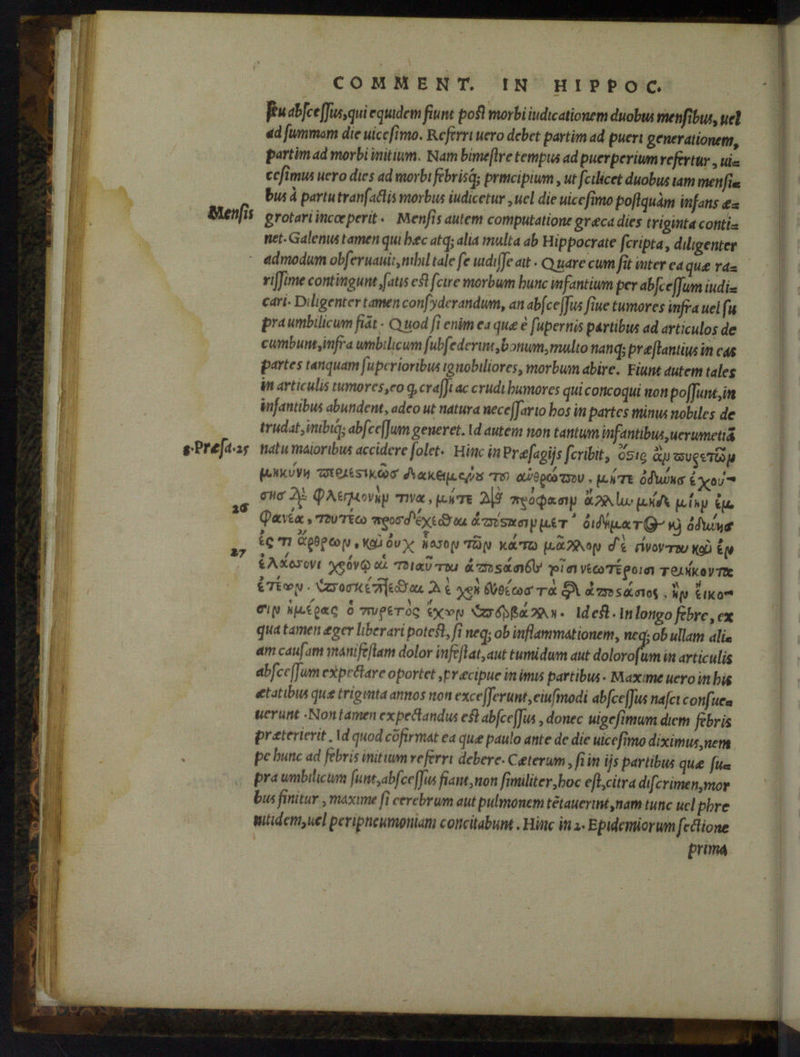 COMMENT. IN HIPPOC.
ſeu abſceſſus,qui equidem fiunt poſt morbi iudicationem duobus menſibus, uel
ad ſummam die uiceſimo. Referri uero debet partim ad pueri generationem,
partim ad morbi initium. Nam bimeſtre tempus ad puerperium refertur, ui=
ceſimus uero dies ad morbi febrisq; principium, ut ſcilicet duobus iam menſi=
bus à partu tranſactis morbus iudicetur, uel die uiceſimo poſtquàm infans æ=
Menſis
grotari incœperit. Menſis autem computatione græca dies triginta conti=
net. Galenus tamen qui hæc atq; alia multa ab Hippocrate ſcripta, diligenter
admodum obſeruauit,nihil tale ſe uidiſſe ait. Quare cum ſit inter ea quæ ra=
riſſime contingunt,ſatis eſt ſcire morbum hunc infantium per abſceſſum iudi=
cari. Diligenter tamen conſyderandum, an abſceſſus ſiue tumores infra uel ſu
pra umbilicum fiāt. Quod ſi enim ea quæ è ſupernis partibus ad articulos de
cumbunt,infra umbilicum ſubſederint,bonum,multo nanq; præſtantius in eas
partes tanquam ſuperioribus ignobiliores, morbum abire. Fiunt autem tales
in articulis tumores,eo q, craſſi ac crudi humores qui concoqui non poſſunt,in
infantibus abundent, adeo ut natura neceſſario hos in partes minus nobiles de
trudat,inibiq; abſceſſum generet. Id autem non tantum infantibus,uerumetiā
2.Præſa.25
natu maioribus accidere ſolet. Hinc in Præſagijs ſcribit, ὅσις ἂν πυρετῶν
μηκύνῃ περιεστικῶσ διακειμένου τοῦ ἀνθρώπου, μήτε ὀδύνησ ἐχού-
26
σησ διὰ φλεγμονήν τινα, μήτε διὰ πρόφασιν ἄλλην μηδεμίην ἐμ
φανέα, τουτέῳ προσδέχεσθαι ἀπόστασιν μετ' οἰδήματος καὶ ὀδύνησ
27
ἔς τι ἄρθρων, καὶ οὐχ ἧσσον τῶν κάτω μᾶλλον δὲ γίνονται καὶ ἐν
ἐλάσσονι χρόνῳ αἱ τοιαῦται ἀποστάσιες τοῖσι νεωτέροισι τριήκοντα
ἐτέων. ὑποσκέπτεσθαι δὲ χρὴ εὐθέωσ τὰ περὶ ἀποστάσιος, ἢν εἴκο-
σιν ἡμέρας ὁ πυρετὸς ἔχων ὑπερβάλλῃ. Id eſt. In longo febre, ex
qua tamen æger liberari poteſt, ſi neq; ob inflammationem, neq; ob ullam ali=
am cauſam manifeſtam dolor infeſtat,aut tumidum aut doloroſum in articulis
abſceſſum expectare oportet,præcipue in imus partibus. Maxime uero in his
ætatibus quæ triginta annos non exceſſerunt,eiuſmodi abſceſſus naſci conſue=
uerunt. Non tamen expectandus eſt abſceſſus, donec uigeſimum diem febris
præterierit. Id quod cōfirmat ea quæ paulo ante de die uiceſimo diximus,nem
pe hunc ad febris initium referri debere. Cæterum, ſi in ijs partibus quæ ſu=
pra umbilicum ſunt,abſceſſus fiant,non ſimiliter,hoc eſt,citra diſcrimen,mor
bus finitur, maxime ſi cerebrum aut pulmonem tētauerint,nam tunc uel phre
nitidem,uel peripneumoniam concitabunt. Hinc in 2. Epidemiorum ſectione
prima